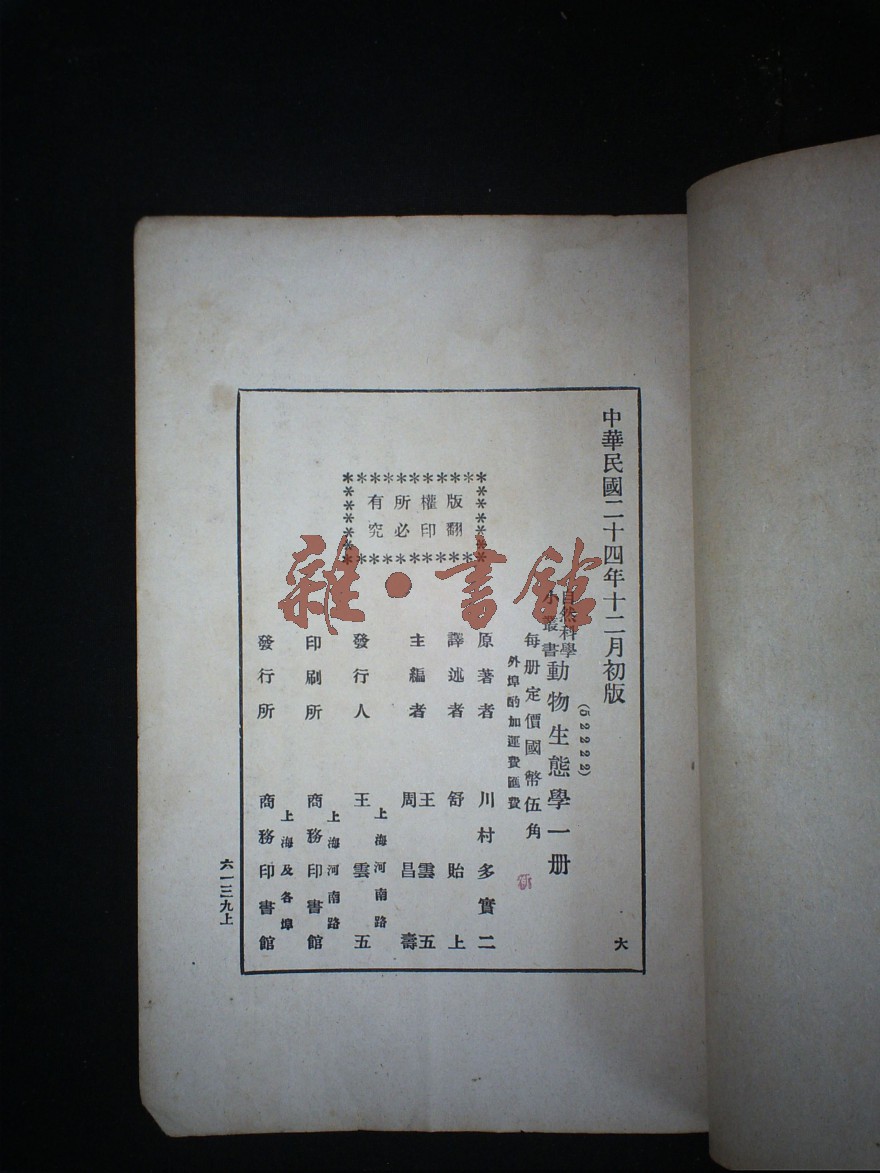 中華民國二十四年十二月初版
大
(52222)
自然科學
小叢書
動物生態學一册
每册定價國幣伍角
外埠酌加運費匯費
原著者 川村多實二
譯述者 舒貽上
主編者 王雲五
周昌壽
發行人 王雲五
上海河南路
印刷所 商務印書館
上海河南路
發行所 商務印書館
上海及各埠
版權所有
翻印必究
六一三九上
雜·書館